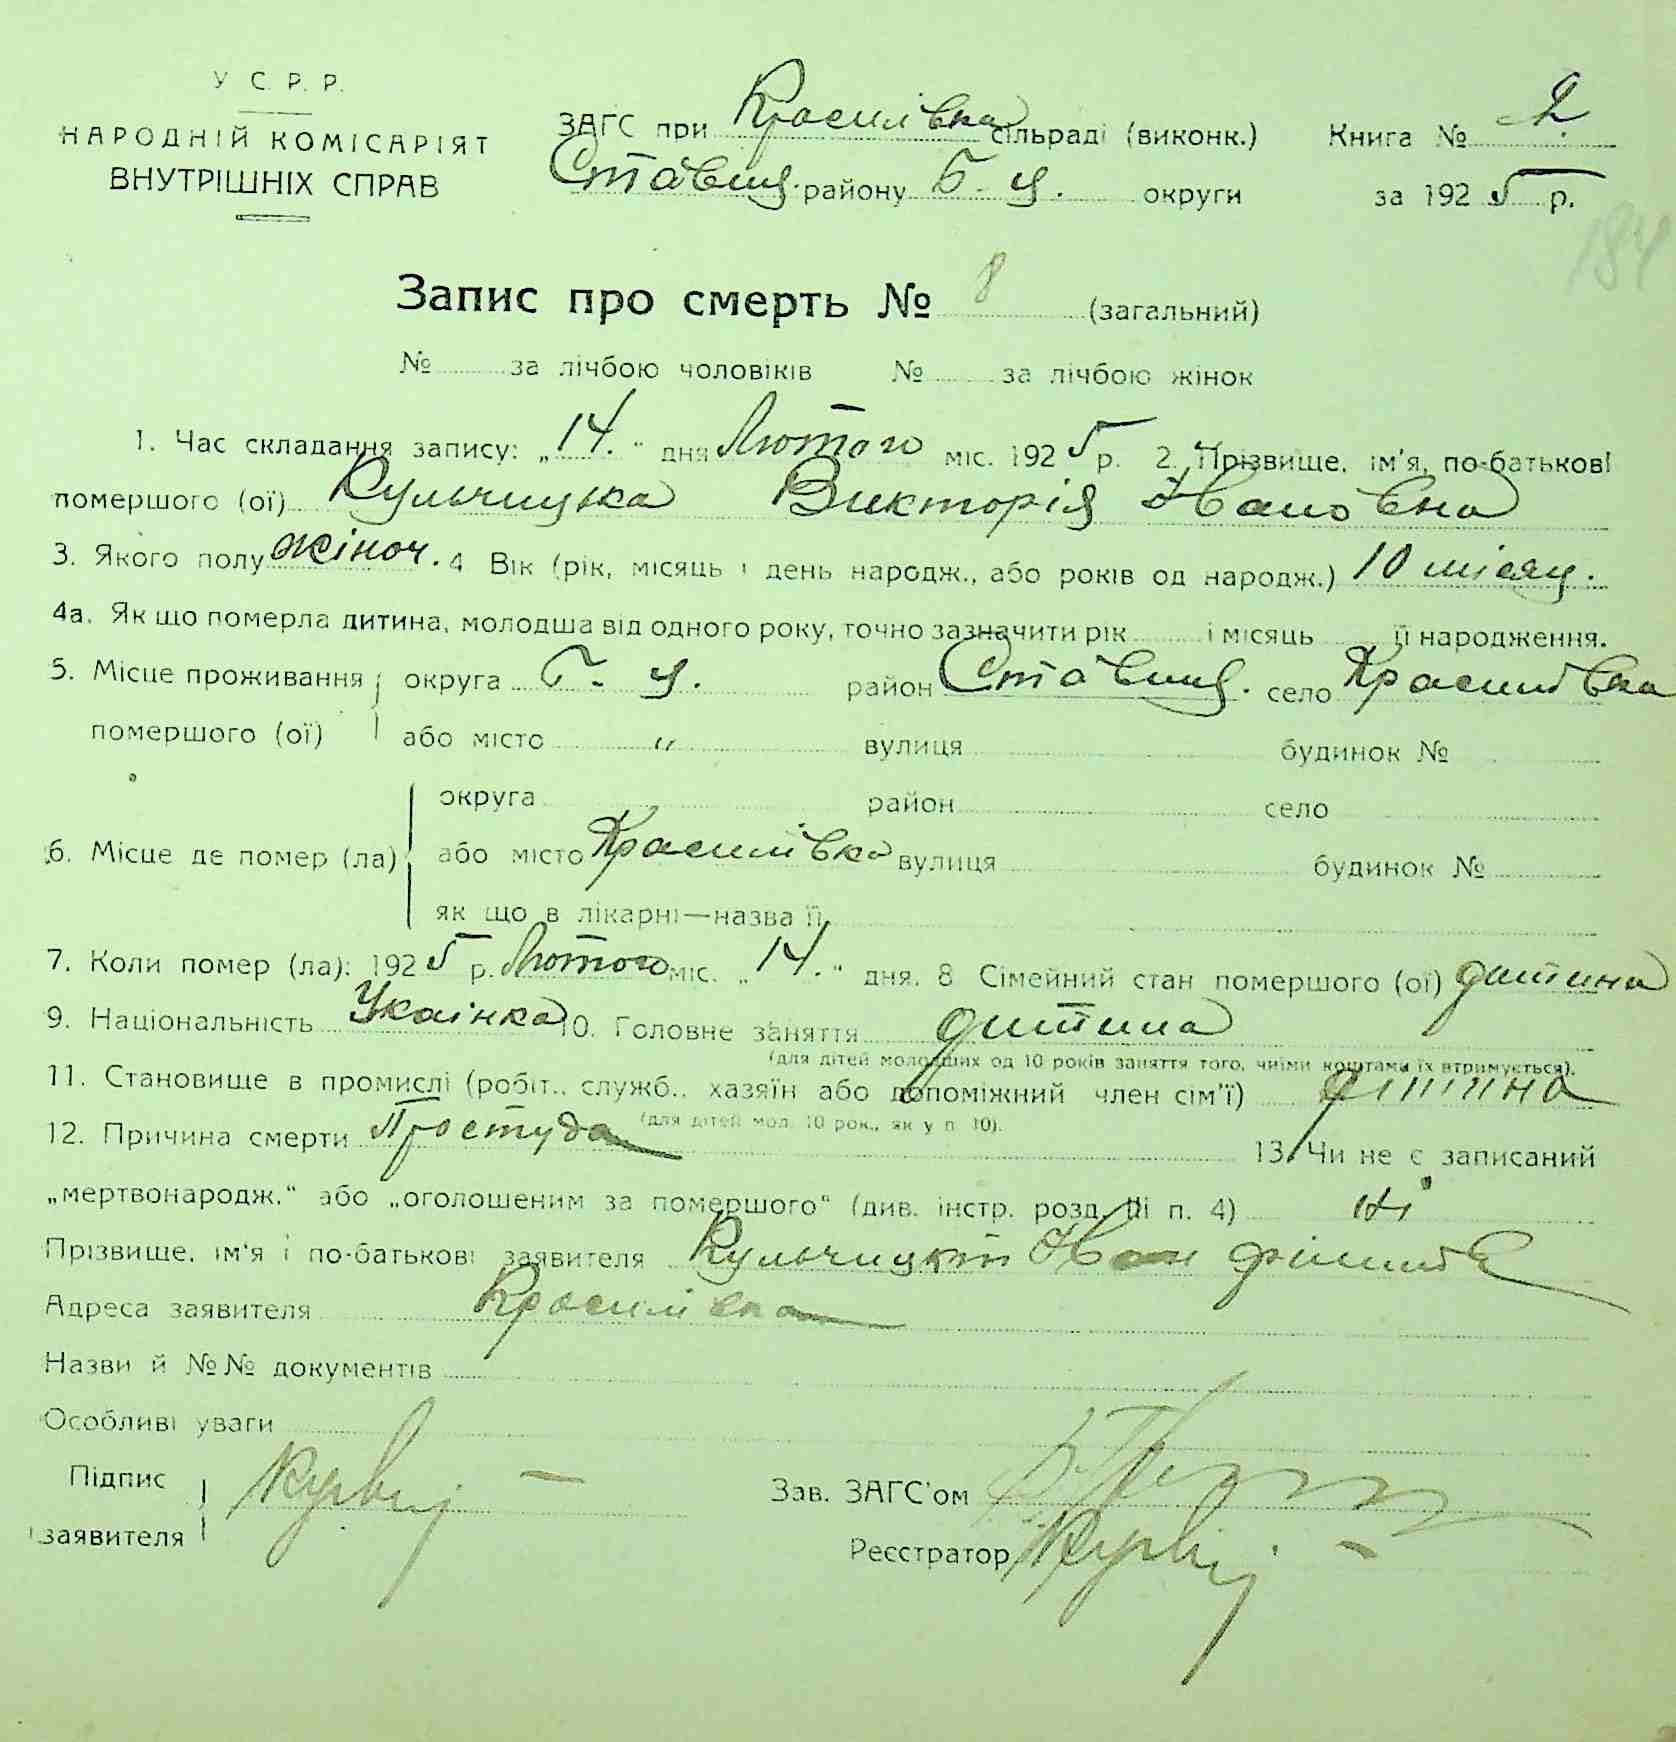 У С. Р. Р.
НАРОДНІЙ КОМІСАРІЯТ
ВНУТРІШНІХ СПРАВ
ЗАГС при Красилівка сільраді (виконк.) Книга № 2
Ставищ. району Б. Ц. округи за 1925 р.
184
Запис про смерть № 8 (загальний)
№ за лічбою чоловіків № за лічбою жінок
1. Час складання запису: „14." дня Лютого міс. 1925 р. 2. Прізвище, ім'я, по-батькові
помершого (ої) Кульчицька Викторія Івановна
3. Якого полу жіноч. 4 Вік (рік, місяць і день народж., або років од народж.) 10 місяц.
4а. Як що померла дитина, молодша від одного року, точно зазначити рік і місяць її народження.
5. Місце проживання округа Б. Ц. район Ставищ. село Красилівка
помершого (ої) або місто " вулиця будинок №
округа район село
6. Місце де помер (ла) або місто Красилівка вулиця будинок №
як що в лікарні—назва її
7. Коли помер (ла): 1925 р. Лютого міс. „14." дня. 8 Сімейний стан помершого (ої) дитина
9. Національність Укаінка 10. Головне заняття дитина
(для дітей молодших од 10 років заняття того, чиїми коштами їх втримується).
11. Становище в промислі (робіт., служб., хазяїн або допоміжний член сім'ї) дитина
(для дітей мол. 10 рок., як у п. 10).
12. Причина смерти Простуда 13. Чи не є записаний
„мертвонародж." або „оголошеним за помершого" (див. інстр. розд. III п. 4) ні
Прізвище, ім'я і по-батькові заявителя Кульчицкій Іван
Адреса заявителя Красилівка
Назви й №№ документів
Особливі уваги
Підпис
заявителя
Зав. ЗАГС'ом
Реєстратор